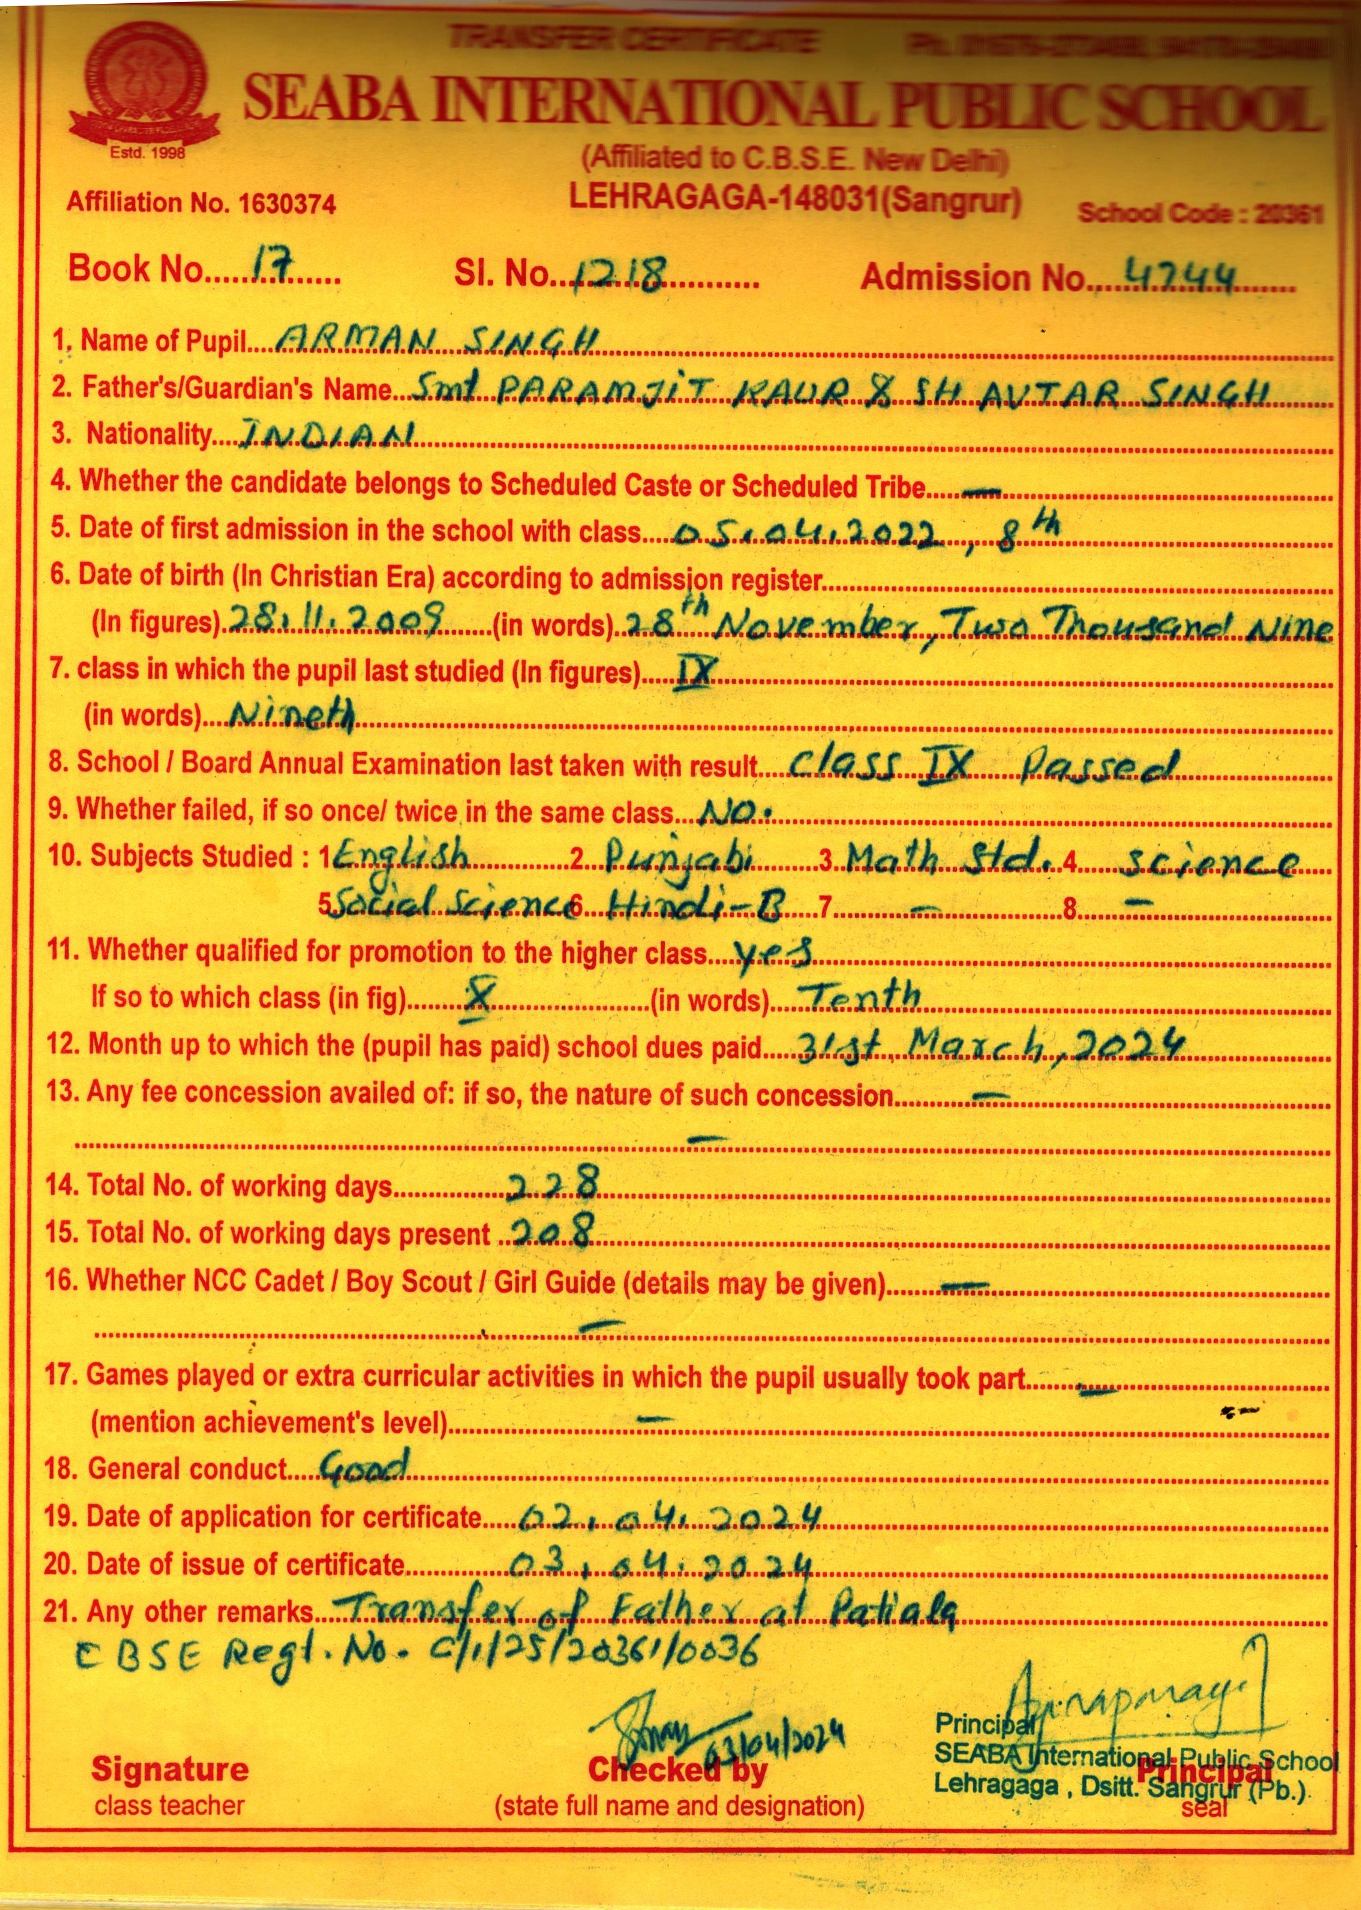 TRANSFER CERTIFICATE Ph.
SEABA INTERNATIONAL PUBLIC SCHOOL
Estd. 1998
(Affiliated to C.B.S.E. New Delhi)
Affiliation No. 1630374 LEHRAGAGA-148031(Sangrur) School Code : 20361
Book No......17...... Sl. No...1218............ Admission No....4744.......
1. Name of Pupil....ARMAN SINGH
2. Father's/Guardian's Name...Smt PARAMJIT KAUR & SH AVTAR SINGH
3. Nationality....INDIAN
4. Whether the candidate belongs to Scheduled Caste or Scheduled Tribe.....—
5. Date of first admission in the school with class....05.04.2022, 8th
6. Date of birth (In Christian Era) according to admission register
(In figures).28.11.2009......(in words)..28th November, Two Thousand Nine
7. class in which the pupil last studied (In figures).....IX
(in words)....Nineth
8. School / Board Annual Examination last taken with result....Class IX Passed
9. Whether failed, if so once/ twice in the same class...NO.
10. Subjects Studied : 1 English 2 Punjabi 3 Math Std. 4 Science
5 Social Science 6 Hindi-B 7 — 8 —
11. Whether qualified for promotion to the higher class....yes
If so to which class (in fig)........X..................(in words)....Tenth
12. Month up to which the (pupil has paid) school dues paid....31st, March, 2024
13. Any fee concession availed of: if so, the nature of such concession..........—
—
14. Total No. of working days...............228
15. Total No. of working days present ..208
16. Whether NCC Cadet / Boy Scout / Girl Guide (details may be given).......—
—
17. Games played or extra curricular activities in which the pupil usually took part.......—
(mention achievement's level)........................—
18. General conduct.....Good
19. Date of application for certificate.....02.04.2024
20. Date of issue of certificate..............03.04.2024
21. Any other remarks....Transfer of Father at Patiala
CBSE Regt. No. C/1/25/20361/0036
03/04/2024
Principal
SEABA International Public School
Lehragaga , Dsitt. Sangrur (Pb.)
Signature Checked by Principal
class teacher (state full name and designation) seal